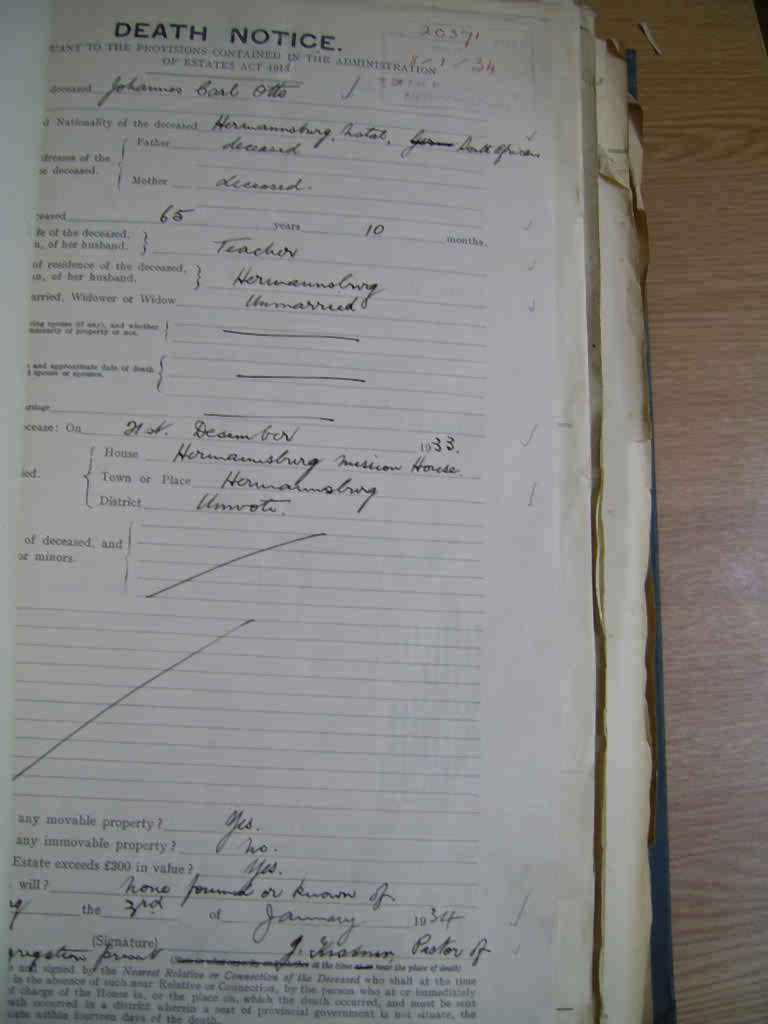 20371
DEATH NOTICE.
UANT TO THE PROVISIONS CONTAINED IN THE ADMINISTRATION
8/1/34
OF ESTATES ACT 1913.
deceased Johannes Carl Otto
d Nationality of the deceased Hermannsburg, Natal, South African
Father deceased
dresses of the
e deceased.
Mother deceased.
ceased 65 years 10 months.
fe of the deceased,
n, of her husband. Teacher
of residence of the deceased,
an, of her husband. Hermannsburg
arried, Widower or Widow Unmarried
ving spouse (if any), and whether
mmunity of property or not.
and approximate date of death
spouse or spouses.
arriage
ecease: On 21st. Desember 1933.
House Hermannsburg Mission House
ied. Town or Place Hermannsburg
District Umvoti.
of deceased, and
or minors.
any movable property? Yes.
any immovable property? No.
Estate exceeds £300 in value? Yes.
will? None found or known of
the 3rd of January 1934
(Signature) Pastor of
present at the time near the place of death)
and signed by the Nearest Relative or Connection of the Deceased who shall at the time
in the absence of such near Relative or Connection, by the person who at or immediately
charge of the House in, or the place on, which the death occurred, and must be sent
ath occurred in a district wherein a seat of provincial government is not situate, the
cate within fourteen days of the death.